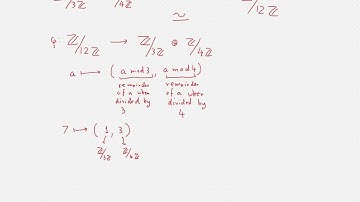 ℤ/3ℤ ℤ/4ℤ ℤ/12ℤ
~
φ: ℤ/12ℤ ⟶ ℤ/3ℤ ⊕ ℤ/4ℤ
a ⟼ (a mod 3, a mod 4)
remainder of a when divided by 3
remainder of a when divided by 4
7 ⟼ (1, 3)
ℤ/3ℤ ℤ/4ℤ